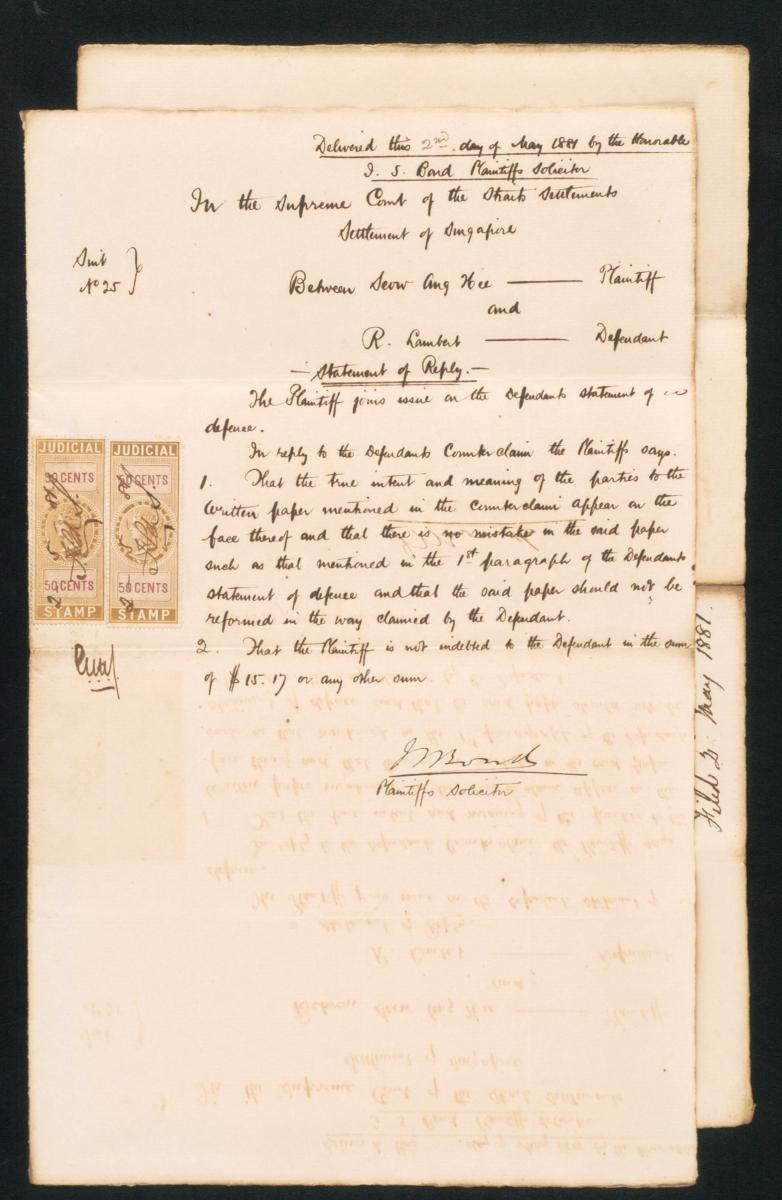 Delivered this 2nd. day of May 1881 by the Honorable
I. S. Bond Plaintiffs Solicitor
In the Supreme Court of the Straits Settlements
Settlement of Singapore
Suit
No 25
Between Seow Ang Hee —— Plaintiff
and
R. Lambert —— Defendant
— Statement of Reply. —
The Plaintiff joins issue on the Defendants statement of
defence.
In reply to the Defendants Counterclaim the Plaintiffs says.
1. That the true intent and meaning of the parties to the
written paper mentioned in the counterclaim appear on the
face thereof and that there is no mistake in the said paper
such as that mentioned in the 1st paragraph of the Defendants
statement of defence and that the said paper should not be
reformed in the way claimed by the Defendant.
2. That the Plaintiff is not indebted to the Defendant in the sum
of $15.17 or any other sum
Bond
Plaintiffs Solicitor
JUDICIAL
50 CENTS
50 CENTS
STAMP
JUDICIAL
50 CENTS
50 CENTS
STAMP
Filed 2 May 1881.